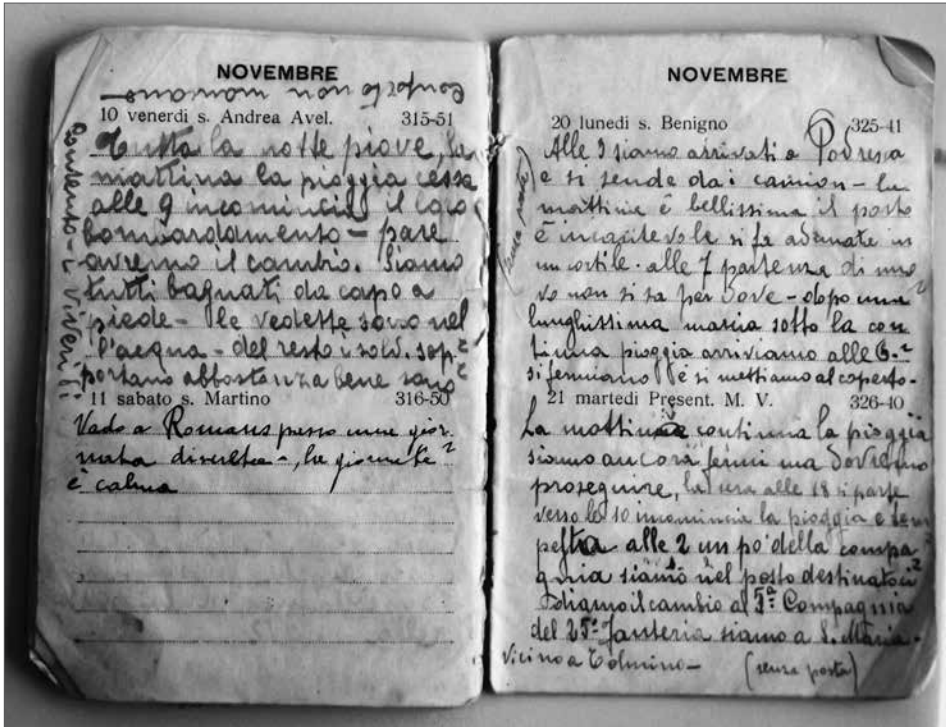 NOVEMBRE
10 venerdi s. Andrea Avel. 315-51
Tutta la notte piove, la
mattina la pioggia cessa
alle 9 incomincia il loro
bombardamento - pare
avremo il cambio. Siamo
tutti bagnati da capo a
piede - le vedette sono nel
l'acqua - del resto i sold. sop=
portano abbastanza bene sono
contro non
i viveri
11 sabato s. Martino 316-50
Vado a Romans passo una gior=
nata discreta -, la giornata
è calma
NOVEMBRE
20 lunedi s. Benigno 325-41
Alle 3 siamo arrivati a Podresca
e si sende dai camion - la
mattina è bellissima il posto
è incantevole si fa adunate in
un cortile. alle 7 partenza di nuo
vo non si sa per dove - dopo una
lunghissima marcia sotto la con
tinua pioggia arriviamo alle 6.
si fermiamo e si mettiamo al coperto -
(senza posta)
21 martedi Present. M. V. 326-40
La mattina continua la pioggia
siamo ancora fermi ma dovremo
proseguire, la sera alle 18 si parte
verso le 10 incomincia la pioggia e tem
pesta alle 2 un po' della compa
gnia siamo nel posto destinatoci
diamo il cambio al 5ª Compagnia
del 25º Fanteria siamo a S. Maria -
vicino a Tolmino - (senza posta)